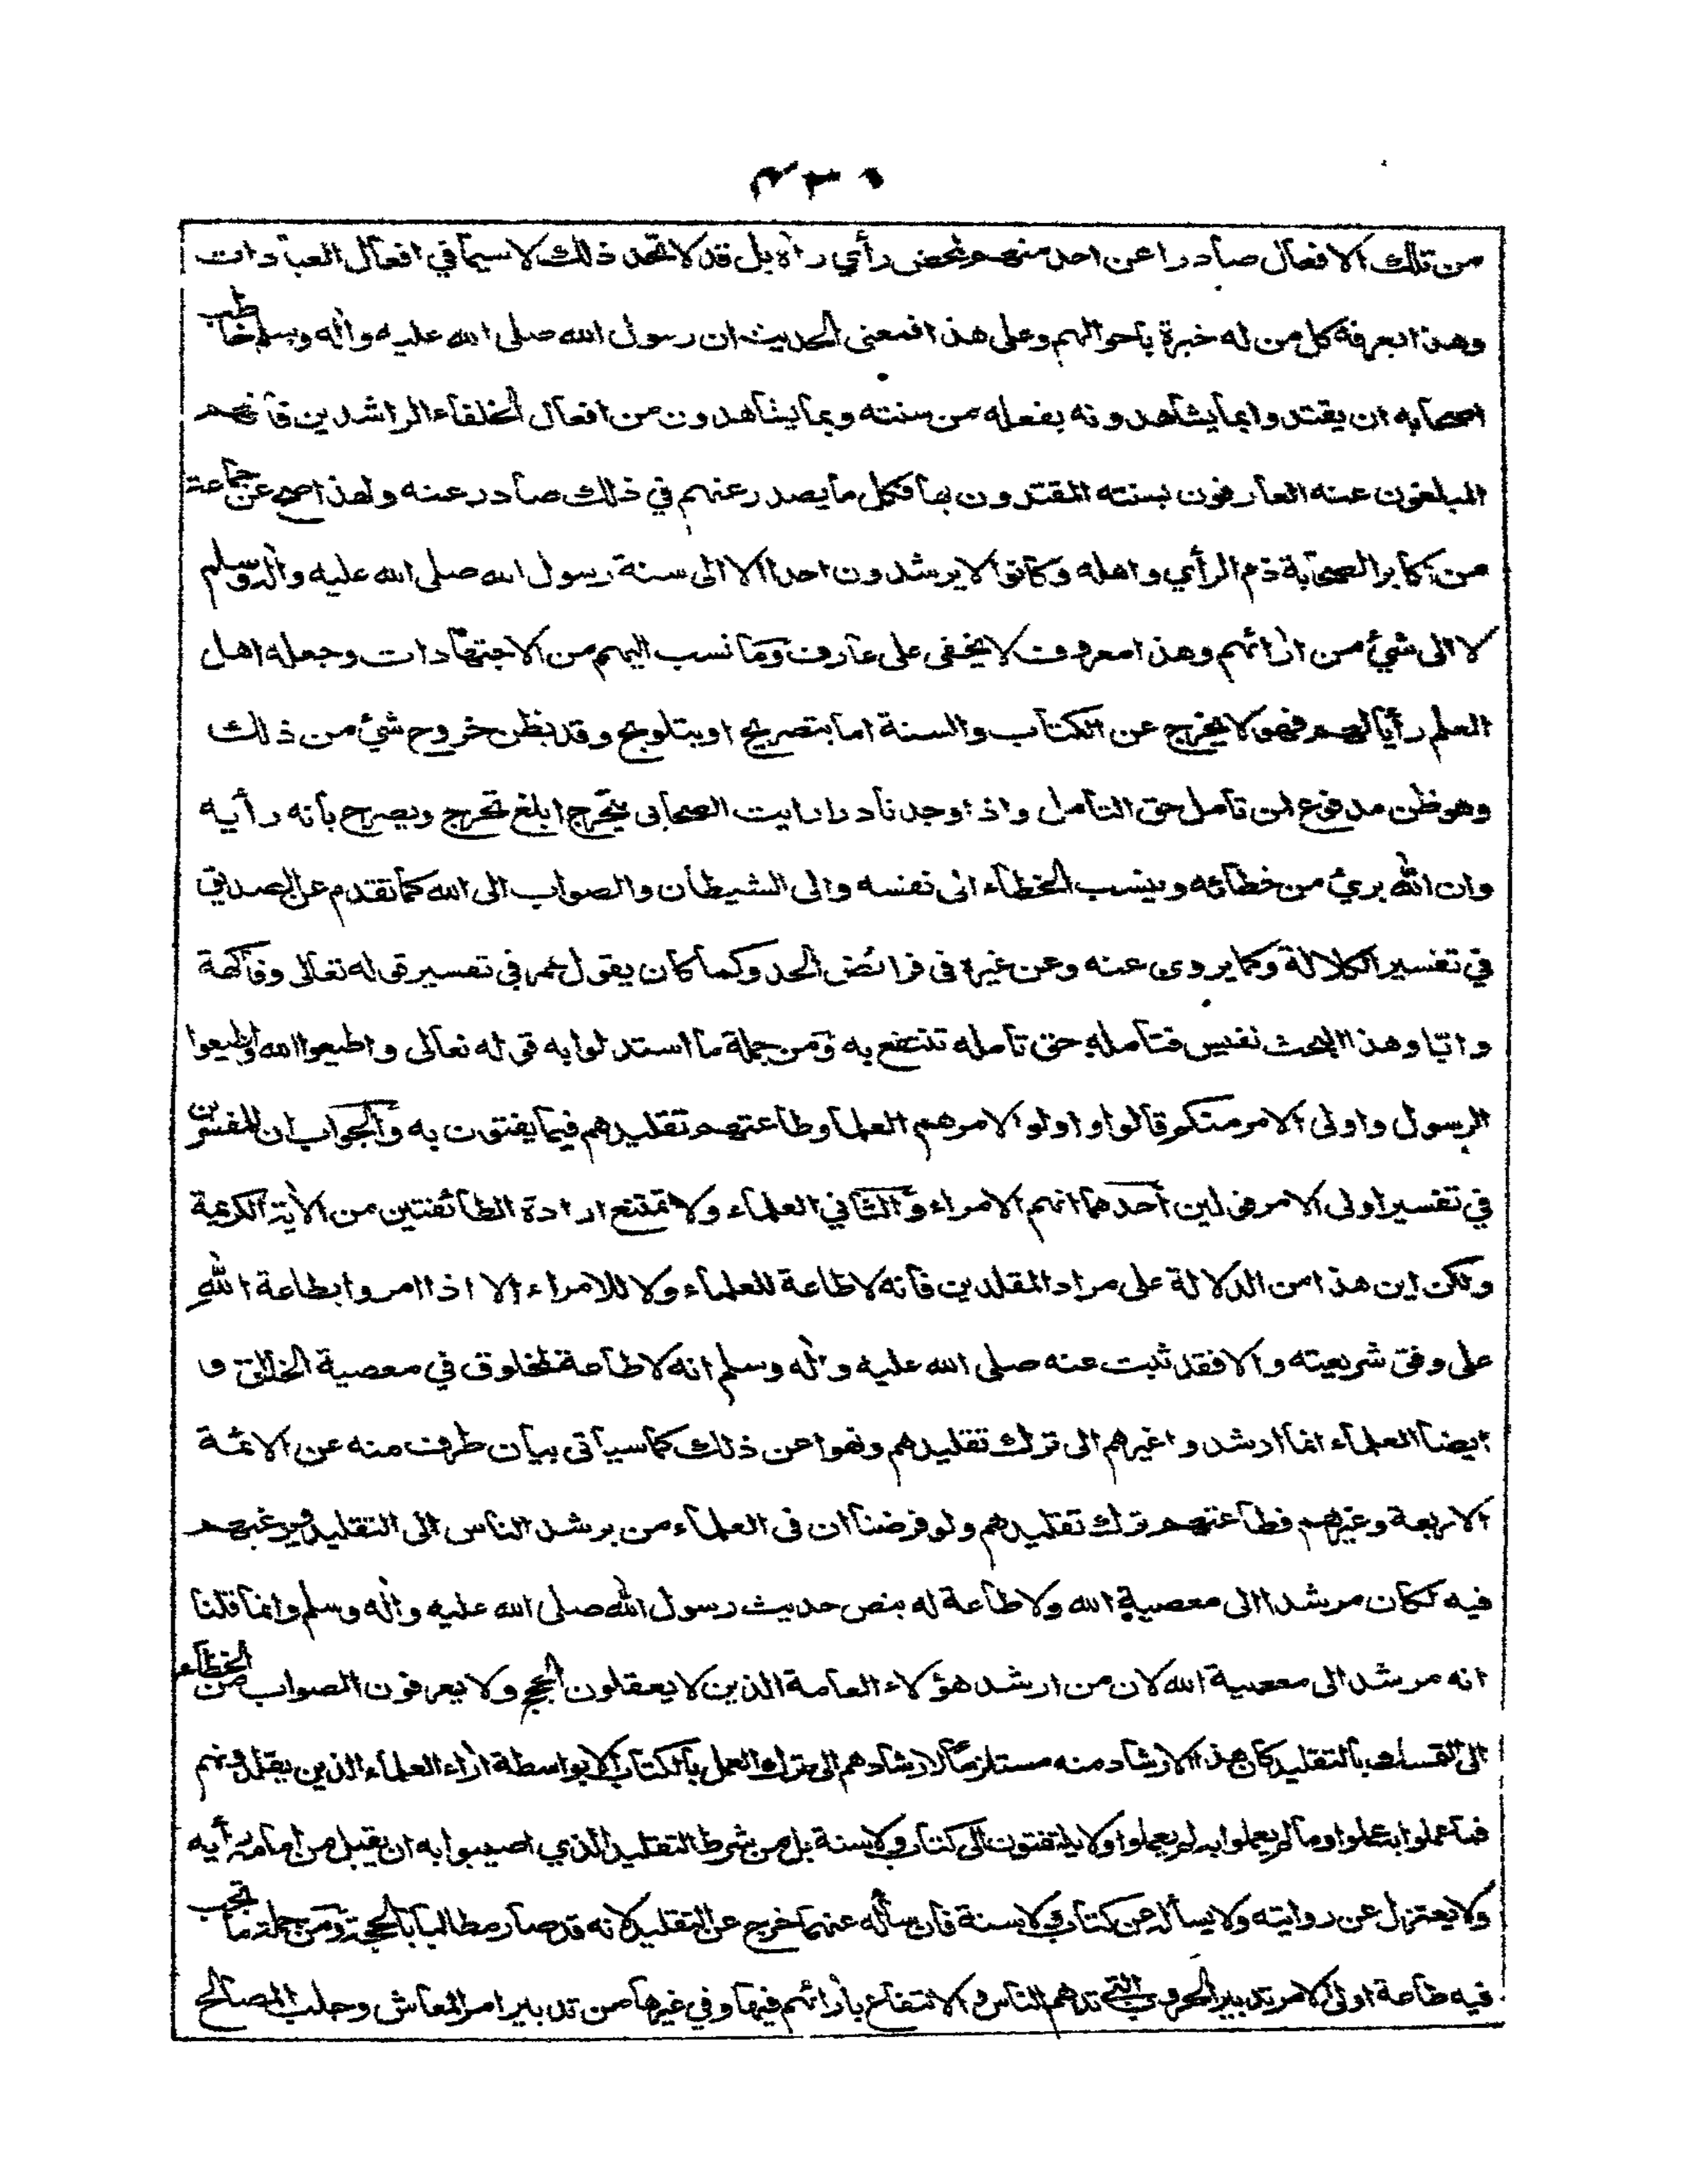 من تلك الافعال صادرا عن احد منهم لمحض رأي رأه بل قد لا تجد ذلك لا سيما في افعال العبادات
وهذا يعرفه كل من له خبرة باحوالهم وعلى هذا فمعنى الحديث ان رسول الله صلى الله عليه وأله وسلم خاطب
اصحابه ان يقتدوا بما يشاهدونه يفعله من سنته وبما يشاهدون من افعال الخلفاء الراشدين فانهم
المبلغون عنه العارفون بسنته المقتدون بها فكل ما يصدر عنهم في ذلك صادر عنه ولهذا صح عن جماعة
من اكابر الصحابة ذم الرأي واهله وكانوا لا يرشدون احدا الا الى سنة رسول الله صلى الله عليه وأله وسلم
لا الى شيئ من أرائهم وهذا معروف لا يخفى على عارف وما نسب اليهم من الاجتهادات وجعله اهل
العلم رأيا لهم فهو لا يخرج عن الكتاب والسنة اما بتصريح او بتلويح وقد يظن خروج شيئ من ذلك
وهو ظن مدفوع لمن تأمل حق التأمل واذا وجد نادرا رايت الصحابى يتحرج ابلغ تحرج ويصرح بأنه رأيه
وان الله بريئ من خطائه وينسب الخطاء الى نفسه والى الشيطان والصواب الى الله كما تقدم عن الصديق
في تفسير الكلالة وكما يروى عنه وعن غيره فى فرائض الجد وكما كان يقول عمر فى تفسير قوله تعالى وفاكهة
وابّا وهذا البحث نفيس فتأمله حق تأمله تنتفع به ومن جملة ما استدلوا به قوله تعالى واطيعوا الله واطيعوا
الرسول واولى الامر منكم قالوا واولو الامر هم العلما وطاعتهم تقليدهم فيما يفتون به والجواب ان للمفسرين
في تفسير اولى الامر قولين أحدهما انهم الامراء والثاني العلماء ولا تمتنع ارادة الطائفتين من الأية الكريمة
ولكن اين هذا من الدلالة على مراد المقلدين فانه لا طاعة للعلماء ولا للامراء الا اذا امروا بطاعة الله
على وفق شريعته والا فقد ثبت عنه صلى الله عليه وأله وسلم انه لا طاعة لمخلوق في معصية الخالق و
ايضا العلماء انما ارشدوا غيرهم الى ترك تقليدهم ونهوا عن ذلك كما سيأتى بيان طرف منه عن الائمة
الاربعة وغيرهم فطاعتهم ترك تقليدهم ولو فرضنا ان فى العلماء من يرشد الناس الى التقليد ويرغبهم
فيه لكان مرشدا الى معصية الله ولا طاعة له بنص حديث رسول الله صلى الله عليه وأله وسلم وانما قلنا
انه مرشد الى معصية الله لان من ارشد هؤلاء العامة الذين لا يعقلون الحجج ولا يعرفون الصواب من الخطاء
الى التمسك بالتقليد كان هذا الارشاد منه مستلزما لارشادهم الى ترك العمل بالكتاب الا بواسطة أراء العلماء الذين يقلدونهم
فما عملوا به عملوا وما لم يعملوا به لم يعملوا ولا يلتفتون الى كتاب ولا سنة بل من شرط التقليد الذي اصيبوا به ان يقبل من امامه رأيه
ولا يعتزل عن روايته ولا يسأله عن كتاب ولا سنة فان سأله عنهما خرج عن التقليد لانه قد صار مطالبا بالحجة ومن جملة ما تجب
فيه طاعة اولى الامر تدبير الحروب التي تدهم الناس والانتفاع بأرائهم فيها وفي غيرها من تدبير امر المعاش وجلب المصالح